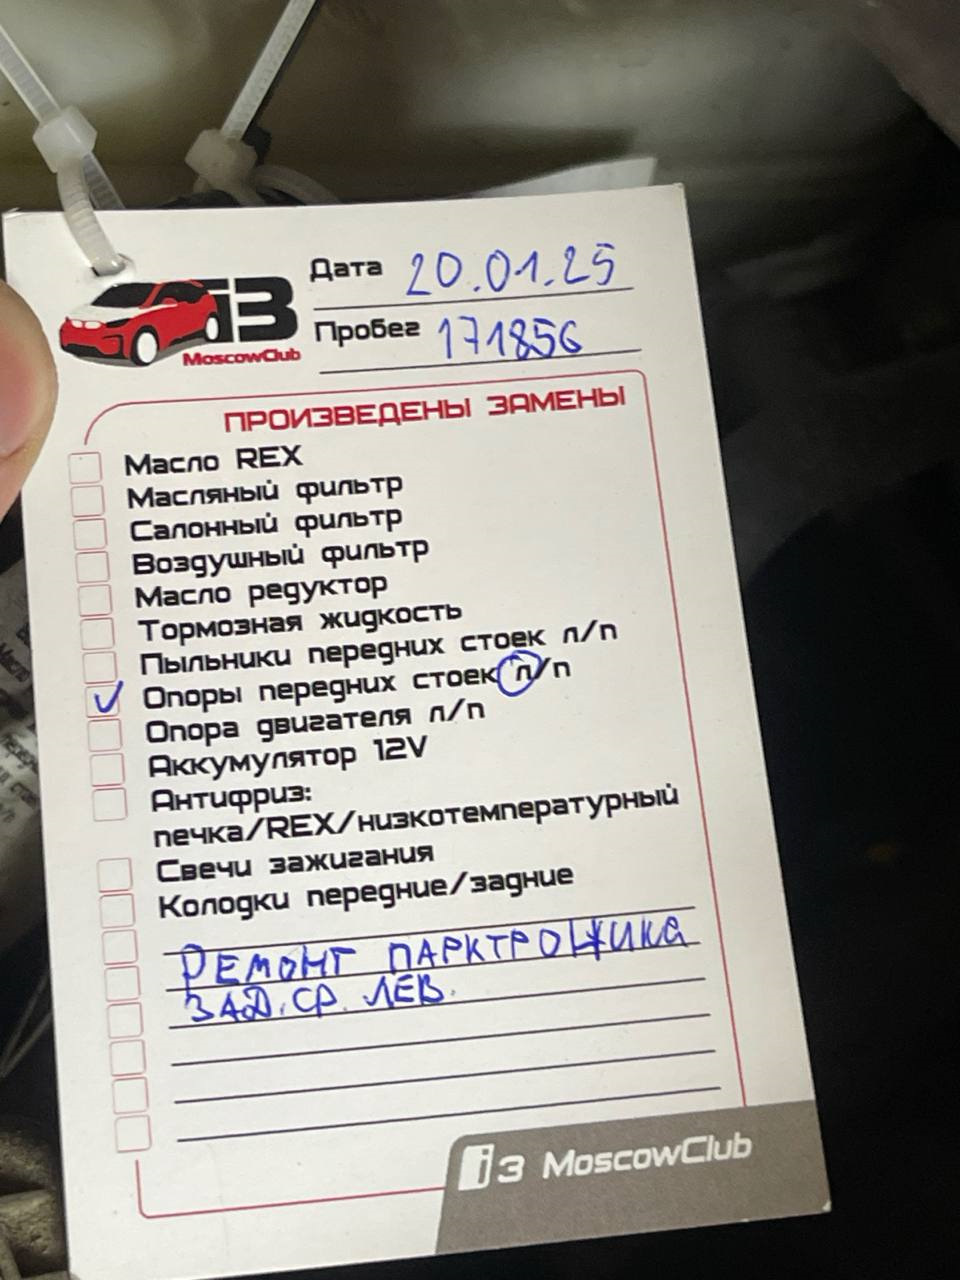 i3
MoscowClub
Дата 20.01.25
Пробег 171856
ПРОИЗВЕДЕНЫ ЗАМЕНЫ
Масло REX
Масляный фильтр
Салонный фильтр
Воздушный фильтр
Масло редуктор
Тормозная жидкость
Пыльники передних стоек л/п
Опоры передних стоек л/п
Опора двигателя л/п
Аккумулятор 12V
Антифриз:
печка/REX/низкотемпературный
Свечи зажигания
Колодки передние/задние
РЕМОНТ ПАРКТРОНИКА
ЗАД. СР. ЛЕВ.
i3 MoscowClub